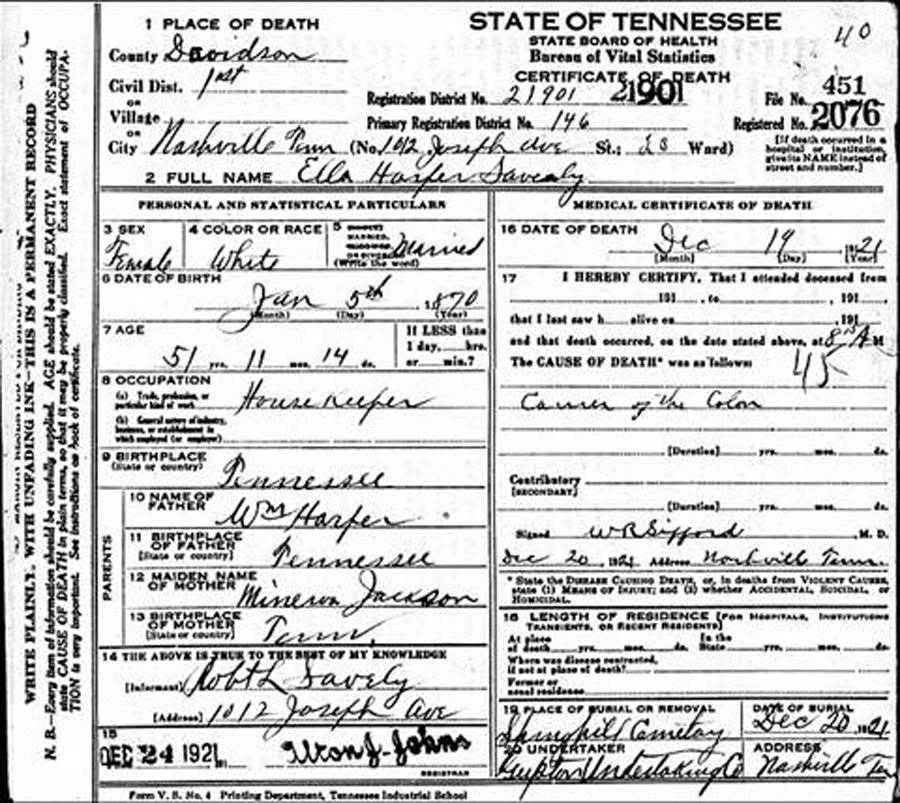 1 PLACE OF DEATH
County Davidson
Civil Dist. 1st
OR
Village
OR
City Nashville Tenn (No. 1012 Joseph Ave St.; Ward)
STATE OF TENNESSEE
STATE BOARD OF HEALTH
Bureau of Vital Statistics
CERTIFICATE OF DEATH
40
Registration District No. 21901 21901
File No. 451
Primary Registration District No. 146
Registered No. 2076
[If death occurred in a
hospital or institution,
give its NAME instead of
street and number.]
2 FULL NAME Ella Harper Savealy
PERSONAL AND STATISTICAL PARTICULARS
3 SEX
Female
4 COLOR OR RACE
White
5
MARRIED,
OR DIVORCED
(Write the word)
Married
6 DATE OF BIRTH
Jan 5th 1870
(Month) (Day) (Year)
7 AGE
51 yrs. 11 mos. 14 ds.
If LESS than
1 day, hrs.
or min.?
8 OCCUPATION
(a) Trade, profession, or
particular kind of work
House Keeper
(b) General nature of industry,
business, or establishment in
which employed (or employer)
9 BIRTHPLACE
(State or country)
Tennessee
PARENTS
10 NAME OF
FATHER
Wm Harper
11 BIRTHPLACE
OF FATHER
[State or country]
Tennessee
12 MAIDEN NAME
OF MOTHER
Minerva Jackson
13 BIRTHPLACE
OF MOTHER
[State or country]
Tenn.
14 THE ABOVE IS TRUE TO THE BEST OF MY KNOWLEDGE
[Informant] Robt L Savely
[Address] 1012 Joseph Ave
15
DEC 24 1921
Alton J. Johns
REGISTRAR
MEDICAL CERTIFICATE OF DEATH
16 DATE OF DEATH
Dec 19 1921
(Month) (Day) (Year)
17 I HEREBY CERTIFY, That I attended deceased from
191 , to , 191
that I last saw h alive on , 191
and that death occurred, on the date stated above, at 8 A M
The CAUSE OF DEATH* was as follows:
45
Cancer of the Colon
[Duration] yrs. mos. ds.
Contributory
[SECONDARY]
(Duration) yrs. mos. ds.
Signed W R Sifford , M. D.
Dec 20 , 1921 Address Nashville Tenn.
* State the DISEASE CAUSING DEATH, or, in deaths from VIOLENT CAUSES,
state (1) MEANS OF INJURY; and (2) whether ACCIDENTAL, SUICIDAL, or
HOMICIDAL.
18 LENGTH OF RESIDENCE [FOR HOSPITALS, INSTITUTIONS
TRANSIENTS, OR RECENT RESIDENTS]
At place
of death yrs. mos. ds.
In the
State yrs. mos. ds.
Where was disease contracted,
if not at place of death?
Former or
usual residence
19 PLACE OF BURIAL OR REMOVAL
Springhill Cemetary
DATE OF BURIAL
Dec 20 1921
20 UNDERTAKER
Gupton Undertaking Co
ADDRESS
Nashville Ten
Form V. S. No. 4 Printing Department, Tennessee Industrial School
WRITE PLAINLY, WITH UNFADING INK—THIS IS A PERMANENT RECORD
N. B.—Every item of information should be carefully supplied. AGE should be stated EXACTLY. PHYSICIANS should
state CAUSE OF DEATH in plain terms, so that it may be properly classified. Exact statement of OCCUPA-
TION is very important. See instructions on back of certificate.